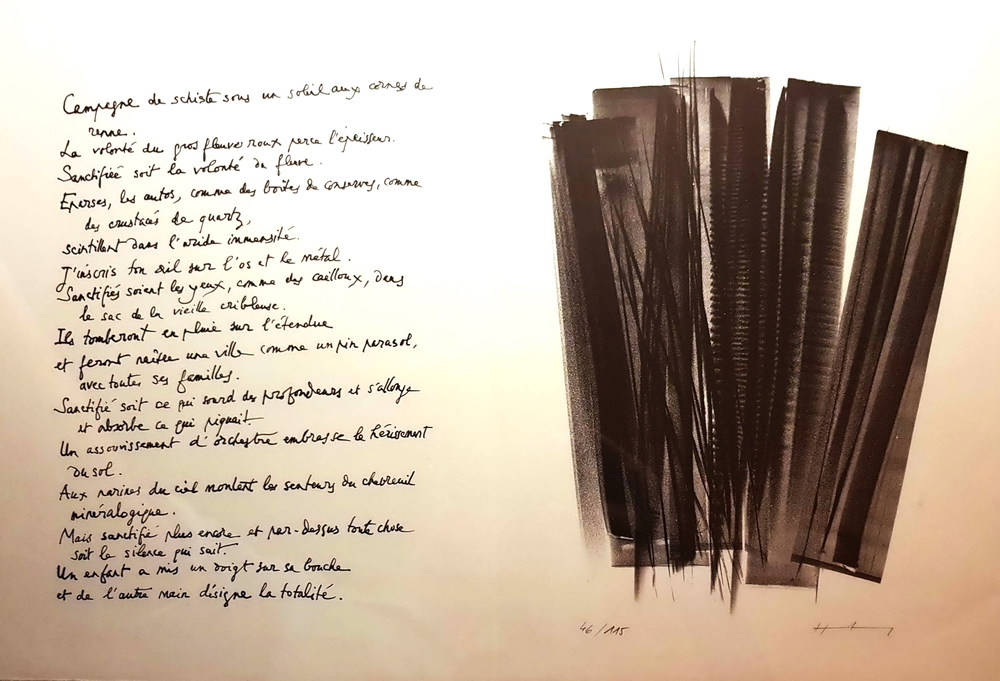 Campagne de schiste sous un soleil aux cornes de
renne.
La volonté du gros fleuve roux perce l'épaisseur.
Sanctifiée soit la volonté du fleuve.
Eparses, les autos, comme des boîtes de conserves, comme
des crustacés de quartz,
scintillent dans l'aride immensité.
J'inscris ton œil sur l'os et le métal.
Sanctifiés soient les yeux, comme des cailloux, dans
le sac de la vieille cribleuse.
Ils tomberont en pluie sur l'étendue
et feront naître une ville comme un pin parasol,
avec toutes ses familles.
Sanctifié soit ce qui sourd des profondeurs et s'allonge
et absorbe ce qui piquait.
Un assouvissement d'orchestre embrasse le hérissement
du sol.
Aux narines du ciel montent les senteurs du chevreuil
minéralogique.
Mais sanctifié plus encore et par-dessus toute chose
soit le silence qui sait.
Un enfant a mis un doigt sur sa bouche
et de l'autre main désigne la totalité.
46/115